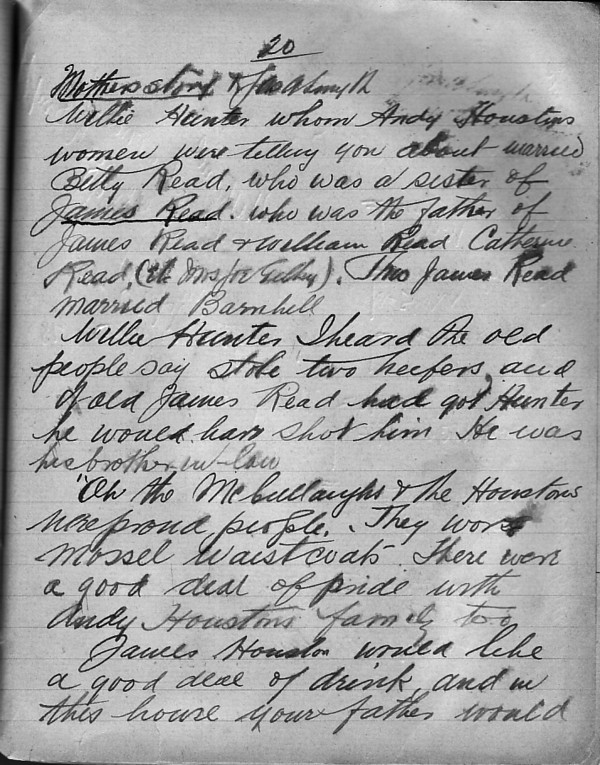 20
Mothers story Jas A Smyth
Willie Hunter whom Andy Houstons
women were telling you about married
Betty Read, who was a sister of
James Read. who was the father of
James Read & William Read Catherine
Read, (the Mrs Joe). This James Read
married Barnhill
Willie Hunter I heard the old
people say stole two heifers, and
if old James Read had got Hunter
he would have shot him He was
his brother-in-law
"Oh the McCullaughs & the Houstons
were proud people. They wore
Mossel waistcoats There were
a good deal of pride with
Andy Houstons family too
James Houston would like
a good deal of drink, and in
this house your father would